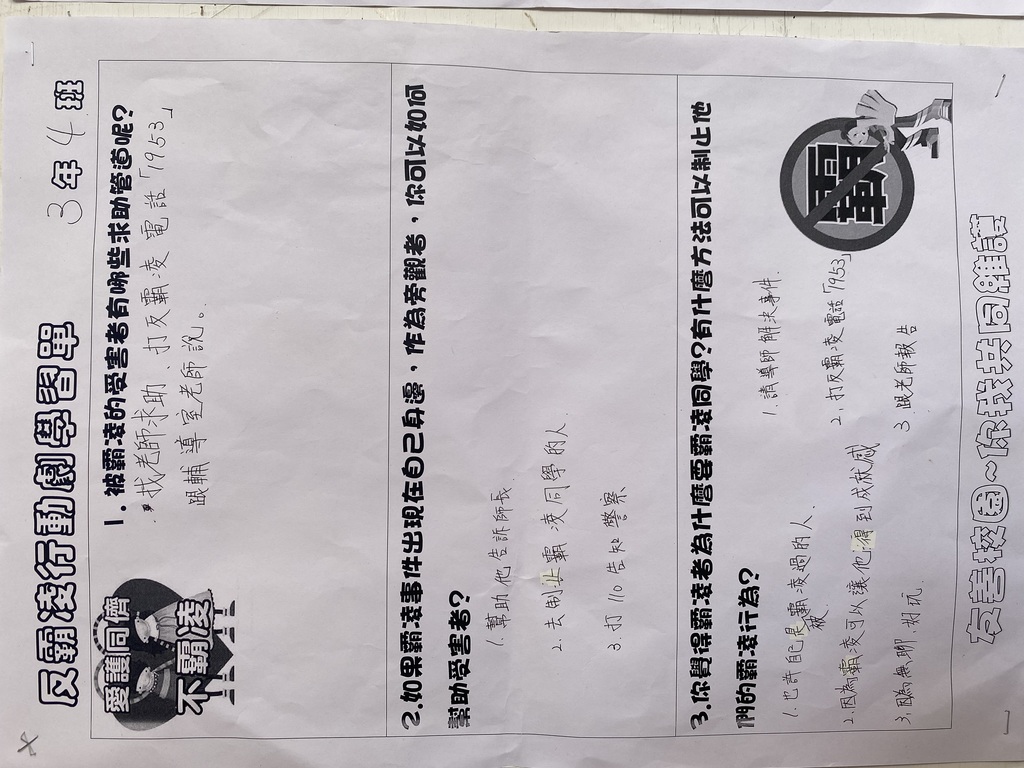 反霸凌行動劇學習單
3年4班
愛護同儕
不霸凌
1.被霸凌的受害者有哪些求助管道呢?
找老師求助、打反霸凌電話「1953」
跟輔導室老師說。
2.如果霸凌事件出現在自己身邊,作為旁觀者,你可以如何
幫助受害者?
1.幫助他告訴師長
2.去制止霸凌同學的人
3.打110告知警察
3.你覺得霸凌者為什麼要霸凌同學?有什麼方法可以制止他
們的霸凌行為?
1.也許自己是被霸凌過的人.
2.因為霸凌可以讓他得到成就感
3.因為無聊.好玩.
1.請導師解決事件.
2.打反霸凌電話「1953」
3跟老師報告
霸凌
友善校園~你我共同維護